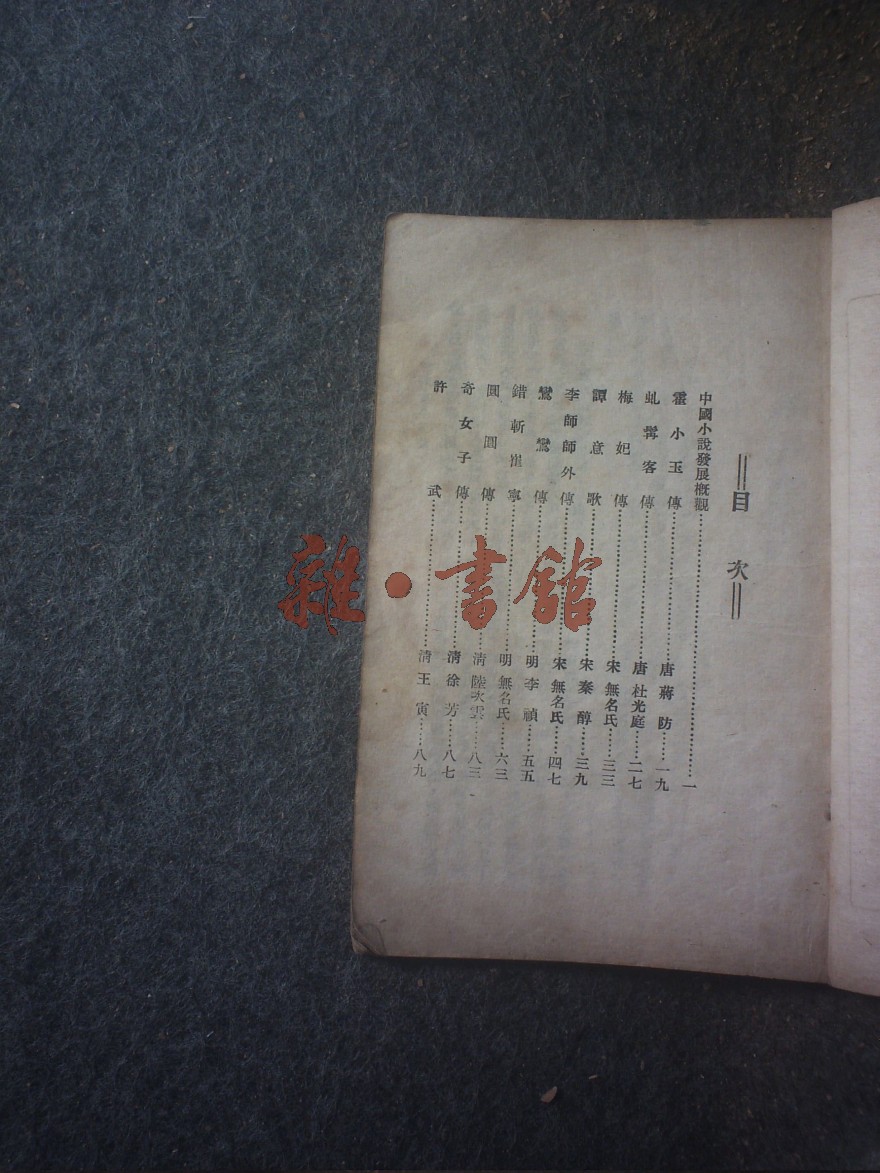 目次
中國小說發展概觀……一
霍小玉傳……唐蔣防……一九
虬髯客傳……唐杜光庭……二七
梅妃傳……宋無名氏……三三
譚意歌……宋秦醇……三九
李師師外傳……宋無名氏……四七
鸞鸞傳……明李禎……五五
錯斬崔寧……明無名氏……六三
圓圓傳……清陸次雲……八三
奇女子傳……清徐芳……八七
許武……清王寅……八九
雜·書館